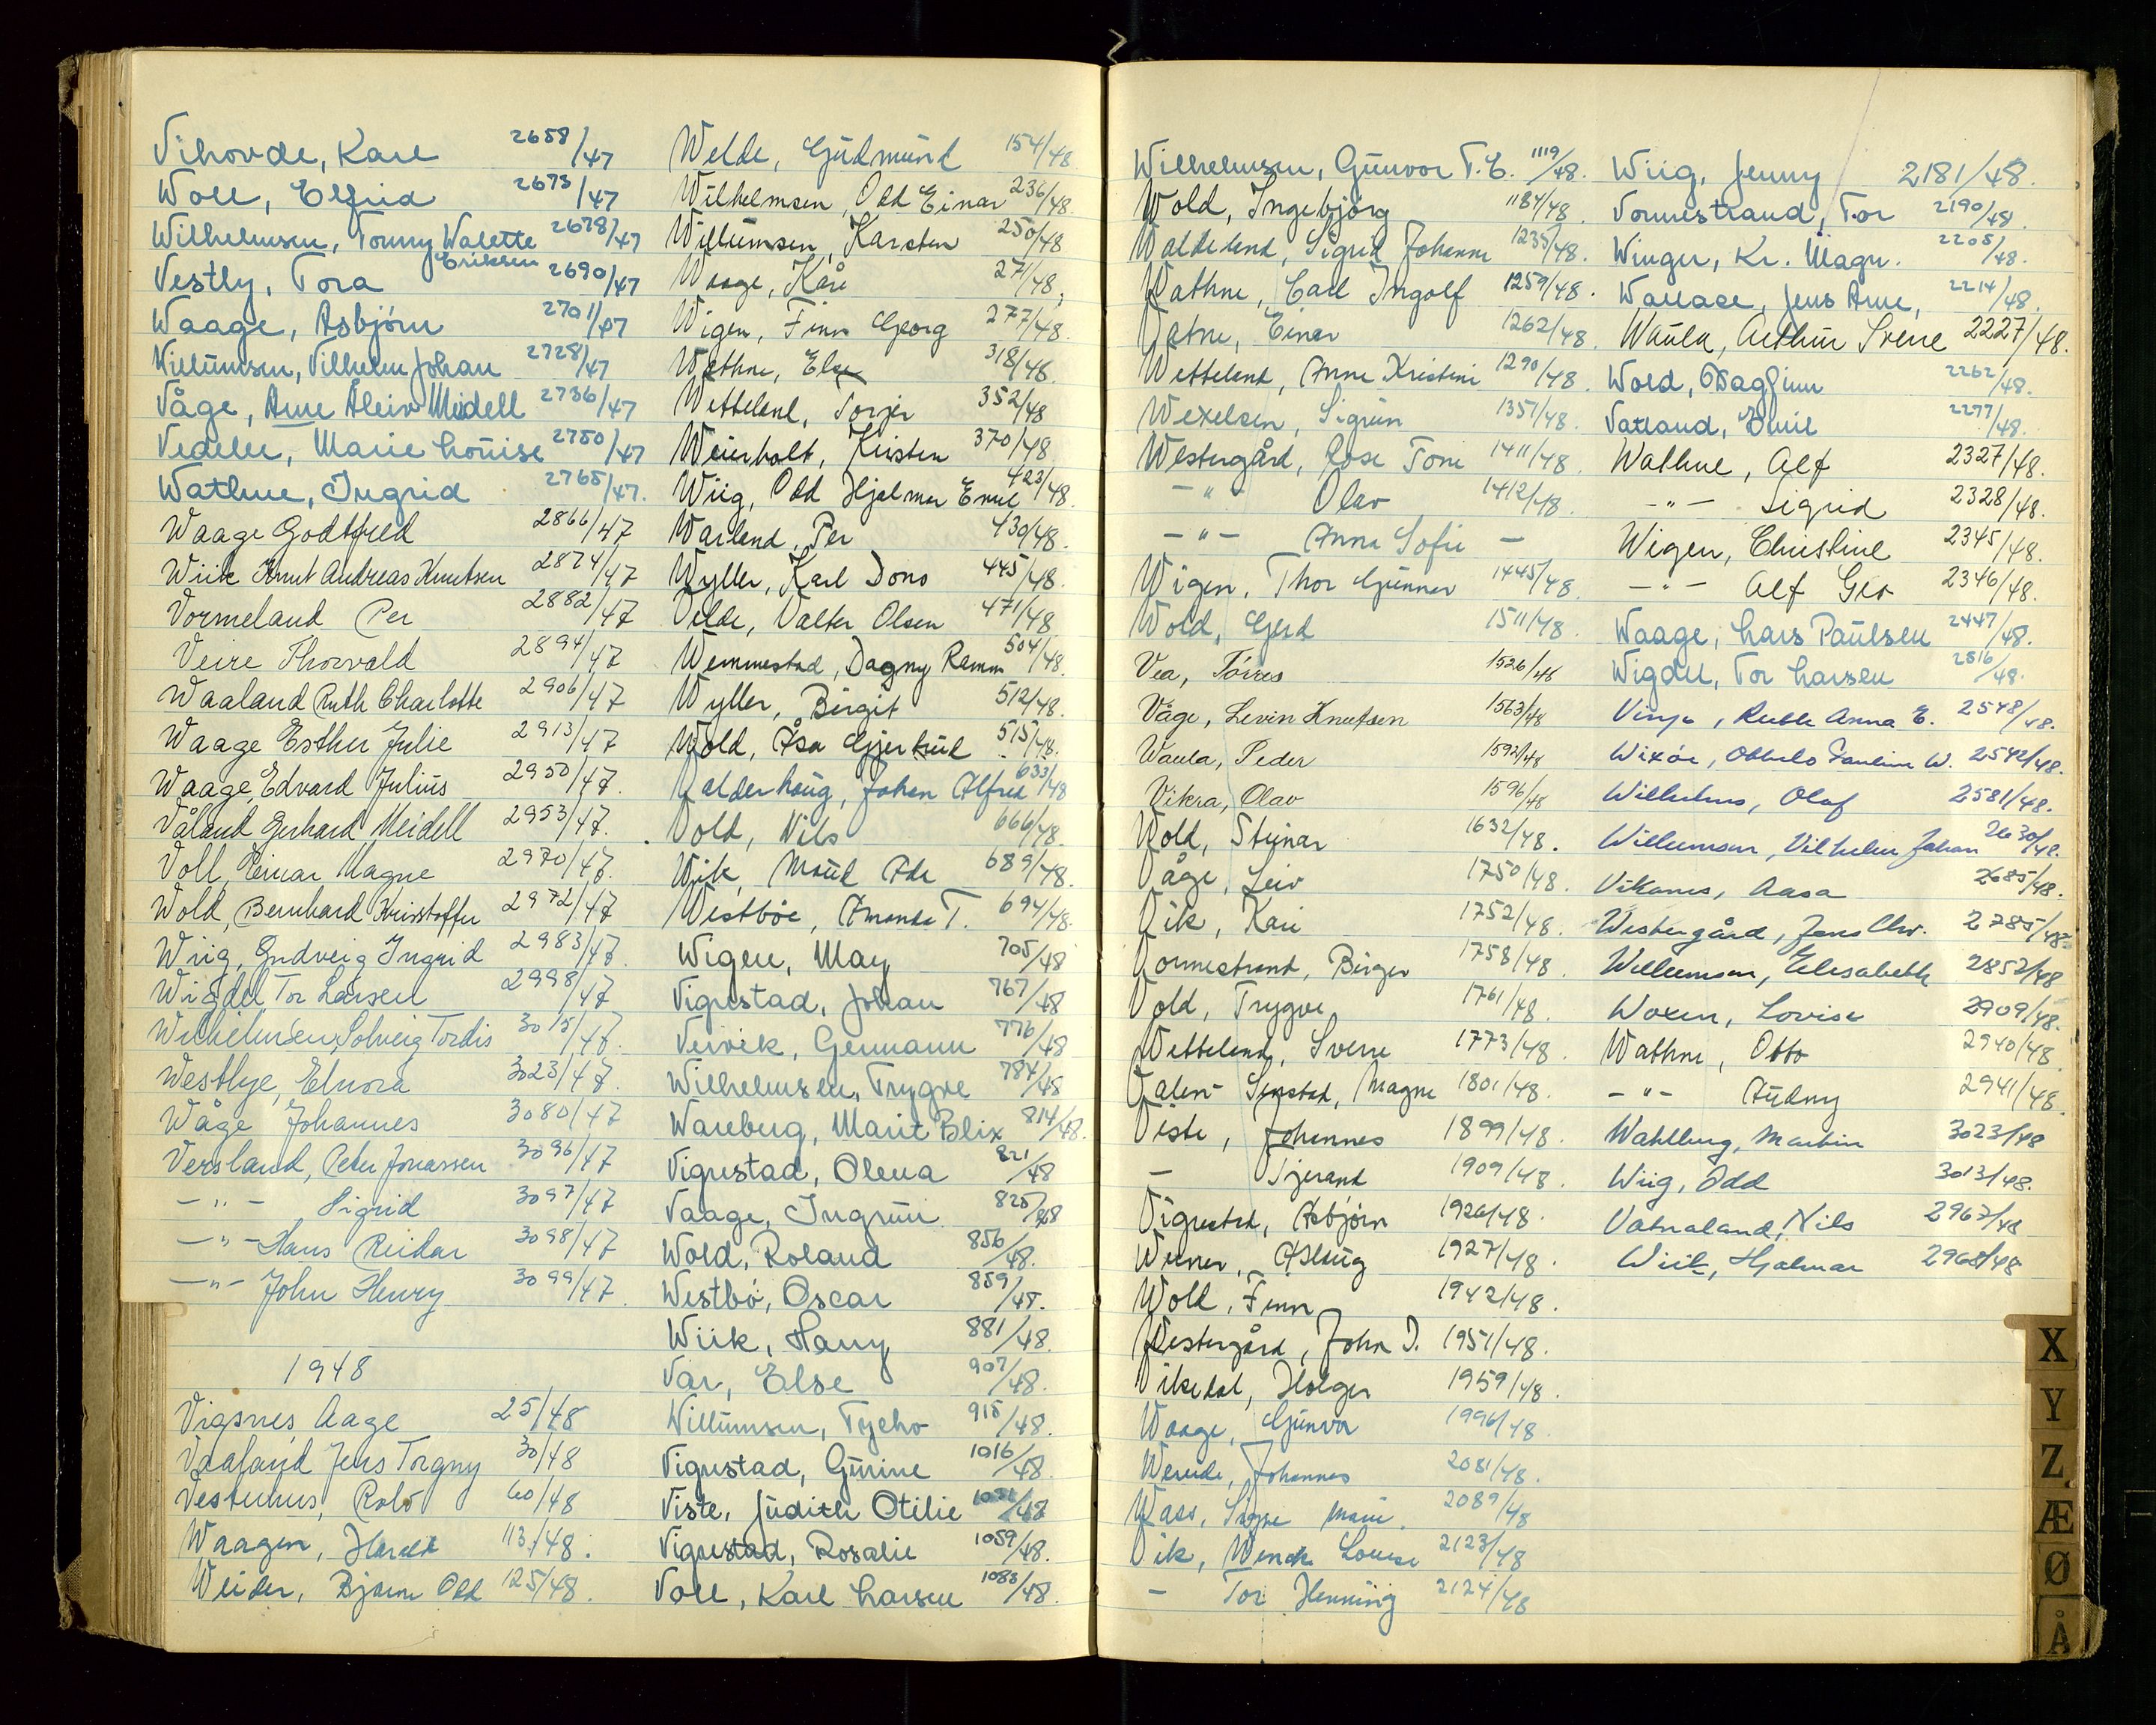 Vihovde, Kare 2658/47
Woll, Elfrid 2673/47
Wilhelmsen, Tonny Walette Eriksen 2678/47
Vestly, Tora 2690/47
Waage, Asbjörn 2701/47
Willumsen, Vilhelm Johan 2728/47
Våge, Arne Aleiv Meidell 2736/47
Vedeler, Marie Louise 2750/47
Wathne, Ingrid 2765/47.
Waage Godtfred 2866/47
Wiik Knut Andreas Knutsen 2874/47
Vormeland Per 2882/47
Veire Thorvald 2894/47
Waaland Ruth Charlotte 2906/47
Waage Esther Julie 2913/47
Waage, Edvard Julius 2950/47.
Våland Gerhard Meidell 2953/47.
Voll, Einar Magne 2970/47.
Wold, Bernhard Kristoffer 2972/47
Wiig, Gudveig Ingrid 2983/47.
Wigdel Tor Larsen 2998/47
Wilhelmsen, Solveig Tordis 3015/47.
Westlye, Elnora 3023/47.
Wåge Johannes 3080/47
Versland, Peter Jonassen 3096/47
-"- Sigrid 3097/47
-"- Hans Reidar 3098/47
-"- John Henry 3099/47.
1948
Vigsnes, Aage 25/48
Vaaland Jens Torgny 30/48
Vestenhus, Rolv 60/48
Waagen, Harald 113/48.
Weider, Bjarne Odd 125/48.
Welde, Gudmund 154/48
Wilhelmsen, Odd Einar 236/48.
Willumsen, Karsten 250/48
Waage, Kåre 271/48,
Wigen, Finn Georg 277/48.
Wathne, Else 318/48.
Wetteland, Torger 352/48
Weierholt, Kristen 370/48
Wiig, Odd Hjalmar Emil 423/48
Warland, Per 430/48.
Wyller, Karl Dons 445/48.
Velde, Valter Olsen 471/48
Wemmestad, Dagny Ramm 504/48.
Wyller, Birgit 512/48.
Wold, Åsa Gjertrud 515/48.
Valderhaug, Johan Alfred 633/48
Vold, Nils 666/48.
Wik, Maud Ada 689/48.
Westböe, Amanda T. 694/48.
Wigen, May 705/48
Vigrestad, Johan 767/48
Vervik, Germann 776/48
Wilhelmsen, Trygve 784/48
Wareberg, Marit Blix 814/48.
Vigrestad, Olena 821/48
Vaage, Ingrun 825/48
Wold, Roland 856/48.
Westbö, Oscar 859/48.
Wiik, Harry 881/48.
Vår, Else 907/48.
Willumsen, Tycho 915/48.
Vigrestad, Gurine 1016/48.
Viste, Judith Otilie /48
Vigrestad, Rosalie 1059/48.
Voll, Karl Larsen 1083/48.
Wilhelmsen, Gunvor T.E. 1119/48.
Wold, Ingebjörg 1184/48.
Waldeland, Sigrid Johanne 1235/48.
Wathne, Carl Ingolf 1259/48.
Vatne, Einar 1262/48.
Wetteland, Anne Kristine 1290/48.
Wexelsen, Sigrun 1357/48.
Westergård, Rose Tone 1411/48.
-"- Olav 1412/48.
-"- Anna Sofie -
Wigen, Thor Gunnar 1445/48.
Wold, Gerd 1511/48.
Vea, Törres 1526/48
Våge, Levin Knutsen 1563/48
Waula, Peder 1592/48
Vikra, Olav 1596/48
Wold, Steinar 1632/48.
Våge, Leiv 1750/48.
Vik, Kari 1752/48.
Vormestrand, Birger 1758/48.
Vold, Trygve 1761/48.
Wetteland, Sverre 1773/48.
Valen- Senstad, Magne 1801/48.
Viste, Johannes 1899/48.
- Tjerand 1909/48.
Vigrestad, Asbjörn 1926/48.
Werner, Aslaug 1927/48.
Wold, Finn 1942/48.
Westergård, John I. 1951/48.
Vikedal, Holger 1959/48.
Waage, Gunvor 1996/48.
Werude, Johannes 2081/48.
Wass, Signe Marie. 2089/48
Vik, Wenche Louise 2123/48
- Tor Henning 2124/48
Wiig, Jenny 2181/48.
Vormestrand, Tor 2190/48
Winger, Kr. Magn. 2205/48.
Wallace, Jens Arne, 2214/48.
Waula, Arthur Sverre 2227/48.
Wold, Dagfinn 2262/48.
Vatland, Emil 2277/48.
Wathne, Alf 2327/48.
-"- Sigrid 2328/48.
Wigen, Christine 2345/48.
-"- Alf Geo 2346/48.
Waage, Lars Paulsen 2447/48.
Wigdel, Tor Larsen 2516/48.
Vinje, Ruth Anna E. 2548/48.
Wixöe, Pauline W. 2542/48.
Wilhelms, Olaf 2581/48.
Willumsen, Vilhelm Johan 2630/48.
Vikanes, Aasa 2685/48.
Westergård, Jens Chr. 2785/48
Willumsen, Elisabeth 2852/48
Woxen, Lovise 2909/48.
Wathne, Otto 2940/48
-"- Audny 2941/48.
Wahlberg, Martin 3023/48
Wiig, Odd 3013/48.
Vatnaland, Nils 2967/48
Wiik, Hjalmar 2968/48
X
Y
Z
Æ
Ø
Å